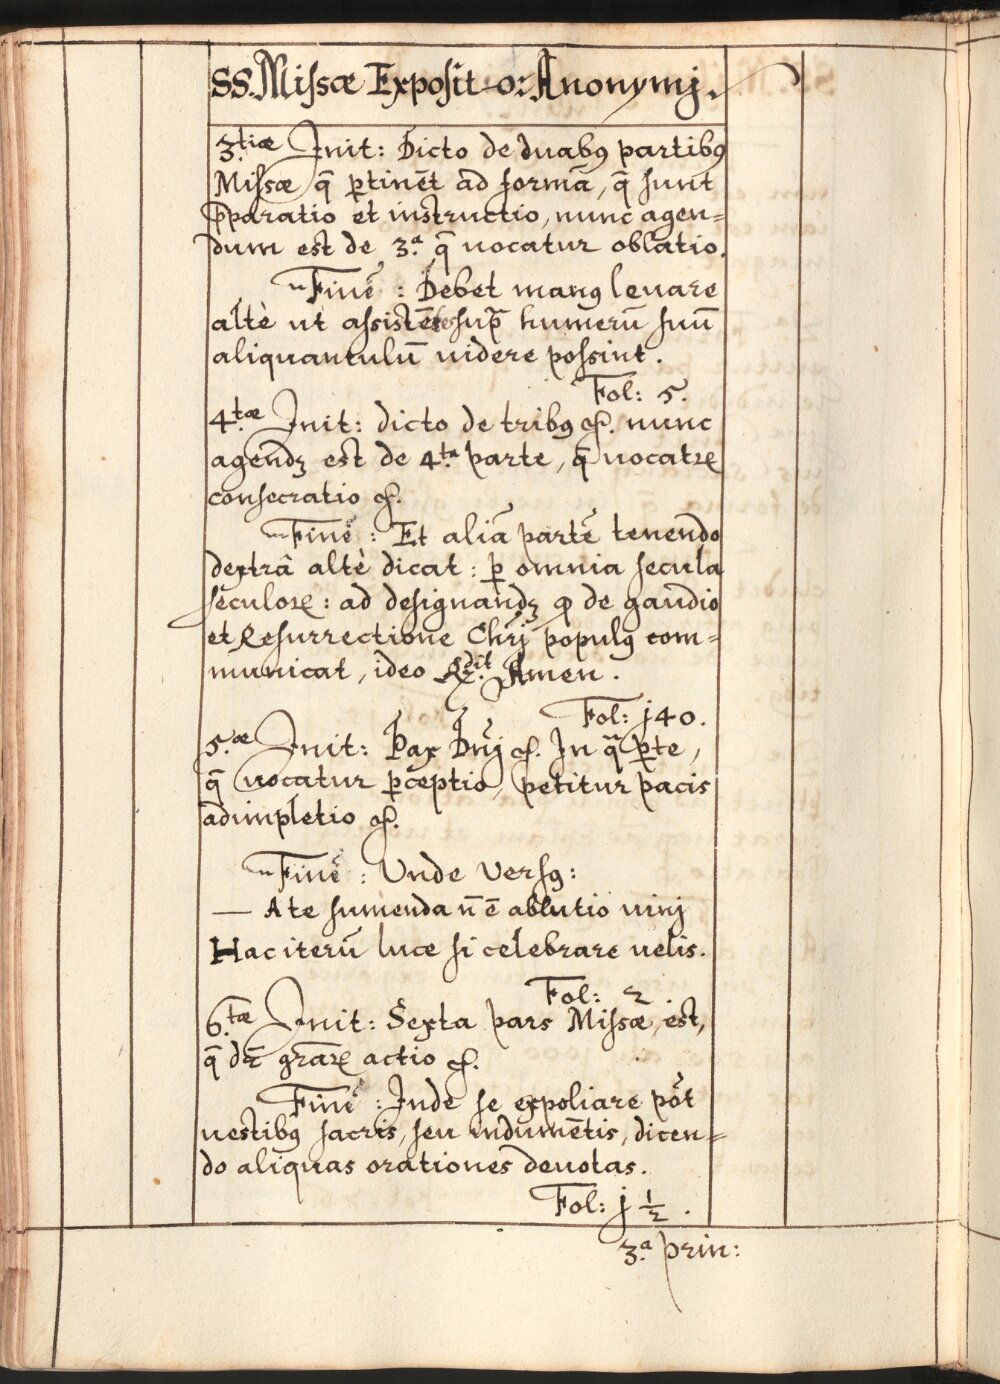 SS. Missæ Exposit-o: Anonymj.
3.tiæ Init: Dicto de duabꝯ partibꝯ
Missæ q̄ ꝑtinēt ad formā, q̄ sunt
p̄paratio et instructio, nunc agen=
dum est de 3.ª q̄ uocatur oblatio.
Finē: Debet manꝯ leuare
altè ut assistētes sup̄ humerū suū
aliquantulū uidere possint.
Fol: 5.
4.tæ Init: dicto de tribꝯ &. nunc
agendꝫ est de 4.ta parte, q̄ uocatꝛ
consecratio &.
Finē: Et aliā partē tenendo
dextrâ altè dicat: ꝑ omnia secula
seculoꝝ: ad designandꝫ ꝙ de gaudio
et Resurrectione Chrj̄ populꝯ com=
municat, ideo ℞.dit Amen.
Fol: j40.
5.æ Init: Pax Dn̄j &. In q̄ ꝑte,
q̄ uocatur ꝑceptio, petitur pacis
adimpletio &.
Finē: Unde Versꝯ:
— A te sumenda n̄ ē ablutio uinj
Hac iterū luce si celebrare uelis.
Fol: 2.
6.tæ Init: Sexta pars Missæ, est,
q̄ dr̄ gr̄aꝝ actio &.
Finē: Inde se expoliare pōt
uestibꝯ sacris, seu indumētis, dicen=
do aliquas orationes deuotas.
Fol: j ½.
3.ª prin: